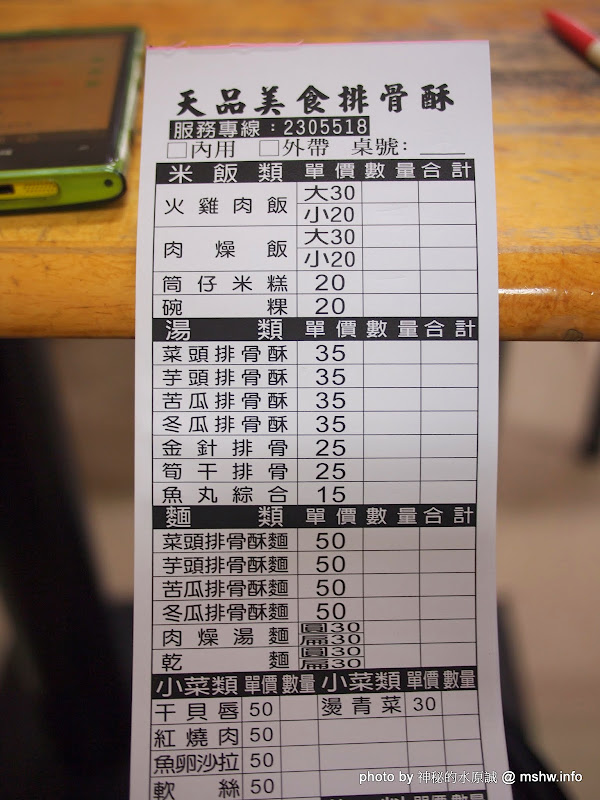 天品美食排骨酥
服務專線：2305518
□內用 □外帶 桌號：
米飯類 單價 數量 合計
火雞肉飯 大30
小20
肉燥飯 大30
小20
筒仔米糕 20
碗粿 20
湯類 單價 數量 合計
菜頭排骨酥 35
芋頭排骨酥 35
苦瓜排骨酥 35
冬瓜排骨酥 35
金針排骨 25
筍干排骨 25
魚丸綜合 15
麵類 單價 數量 合計
菜頭排骨酥麵 50
芋頭排骨酥麵 50
苦瓜排骨酥麵 50
冬瓜排骨酥麵 50
肉燥湯麵 圓30
扁30
乾麵 圓30
扁30
小菜類 單價 數量 小菜類 單價 數量
干貝唇 50 燙青菜 30
紅燒肉 50
魚卵沙拉 50
軟絲 50
photo by 神秘的水原誠 @ mshw.info